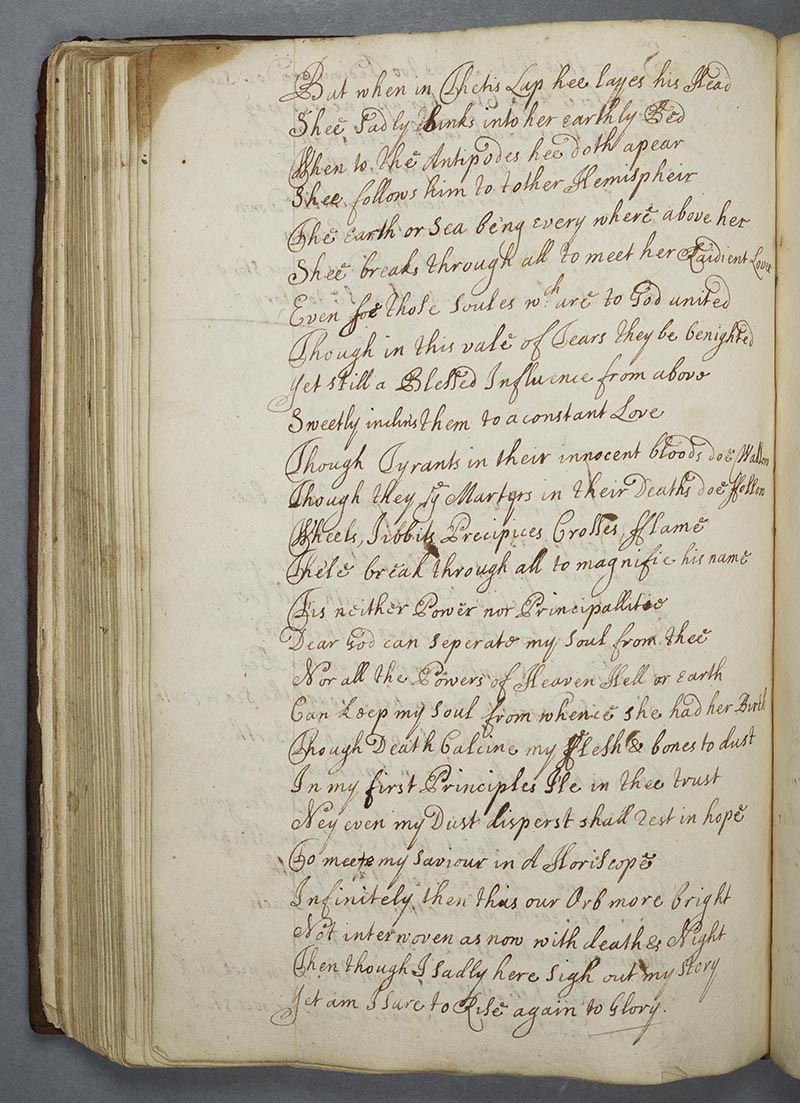 But when in Thetis Lap hee layes his Head
Shee Sadly shrinks into her earthly Bed
When to the Antipodes hee doth apear
Shee follows him to tother Hemispheir
The earth or Sea being every where above her
Shee breaks through all to meet her Raidient Lover
Even soe those Soules wch are to God united
Though in this vale of Tears they be benighted
Yet still a Blessed Influence from above
Sweetly inclins them to a constant Love
Though Tyrants in their innocent bloods doe Wallow
Though they ye Martyrs in their Deaths doe ffollow
Wheels, Jibbits, Precipices, Crosses, fflame
These break through all to magnifie his name
Tis neither Power nor Principallitie
Dear God can seperate my Soul from thee
Nor all the Powers of Heaven Hell or Earth
Can keep my Soul from whence she had her Birth
Though Death Calcine my fflesh & bones to dust
In my first Principles Ile in thee trust
Ney even my Dust disperst shall rest in hope
To meete my Saviour in A Horiscope
Infinitely then this our Orb more bright
Not interwoven as now with death & Night
Then though I sadly here sigh out my story
Yet am I sure to Rise again to Glory.